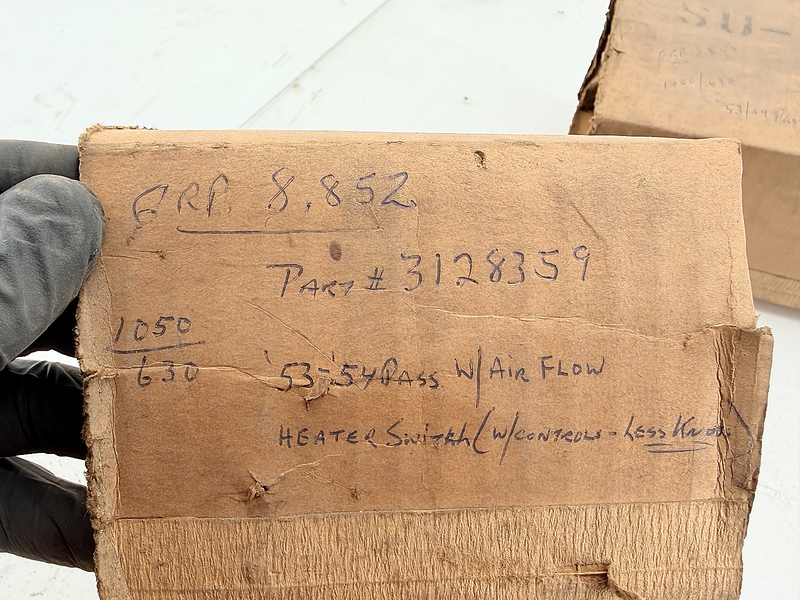 GRP. 8.852
PART # 3128359
1050
630
'53-'54 PASS W/AIR FLOW
HEATER SWITCH (W/CONTROLS - LESS KNOBS)
SU-
GRP 8.852
1050/630
53/54 PASS